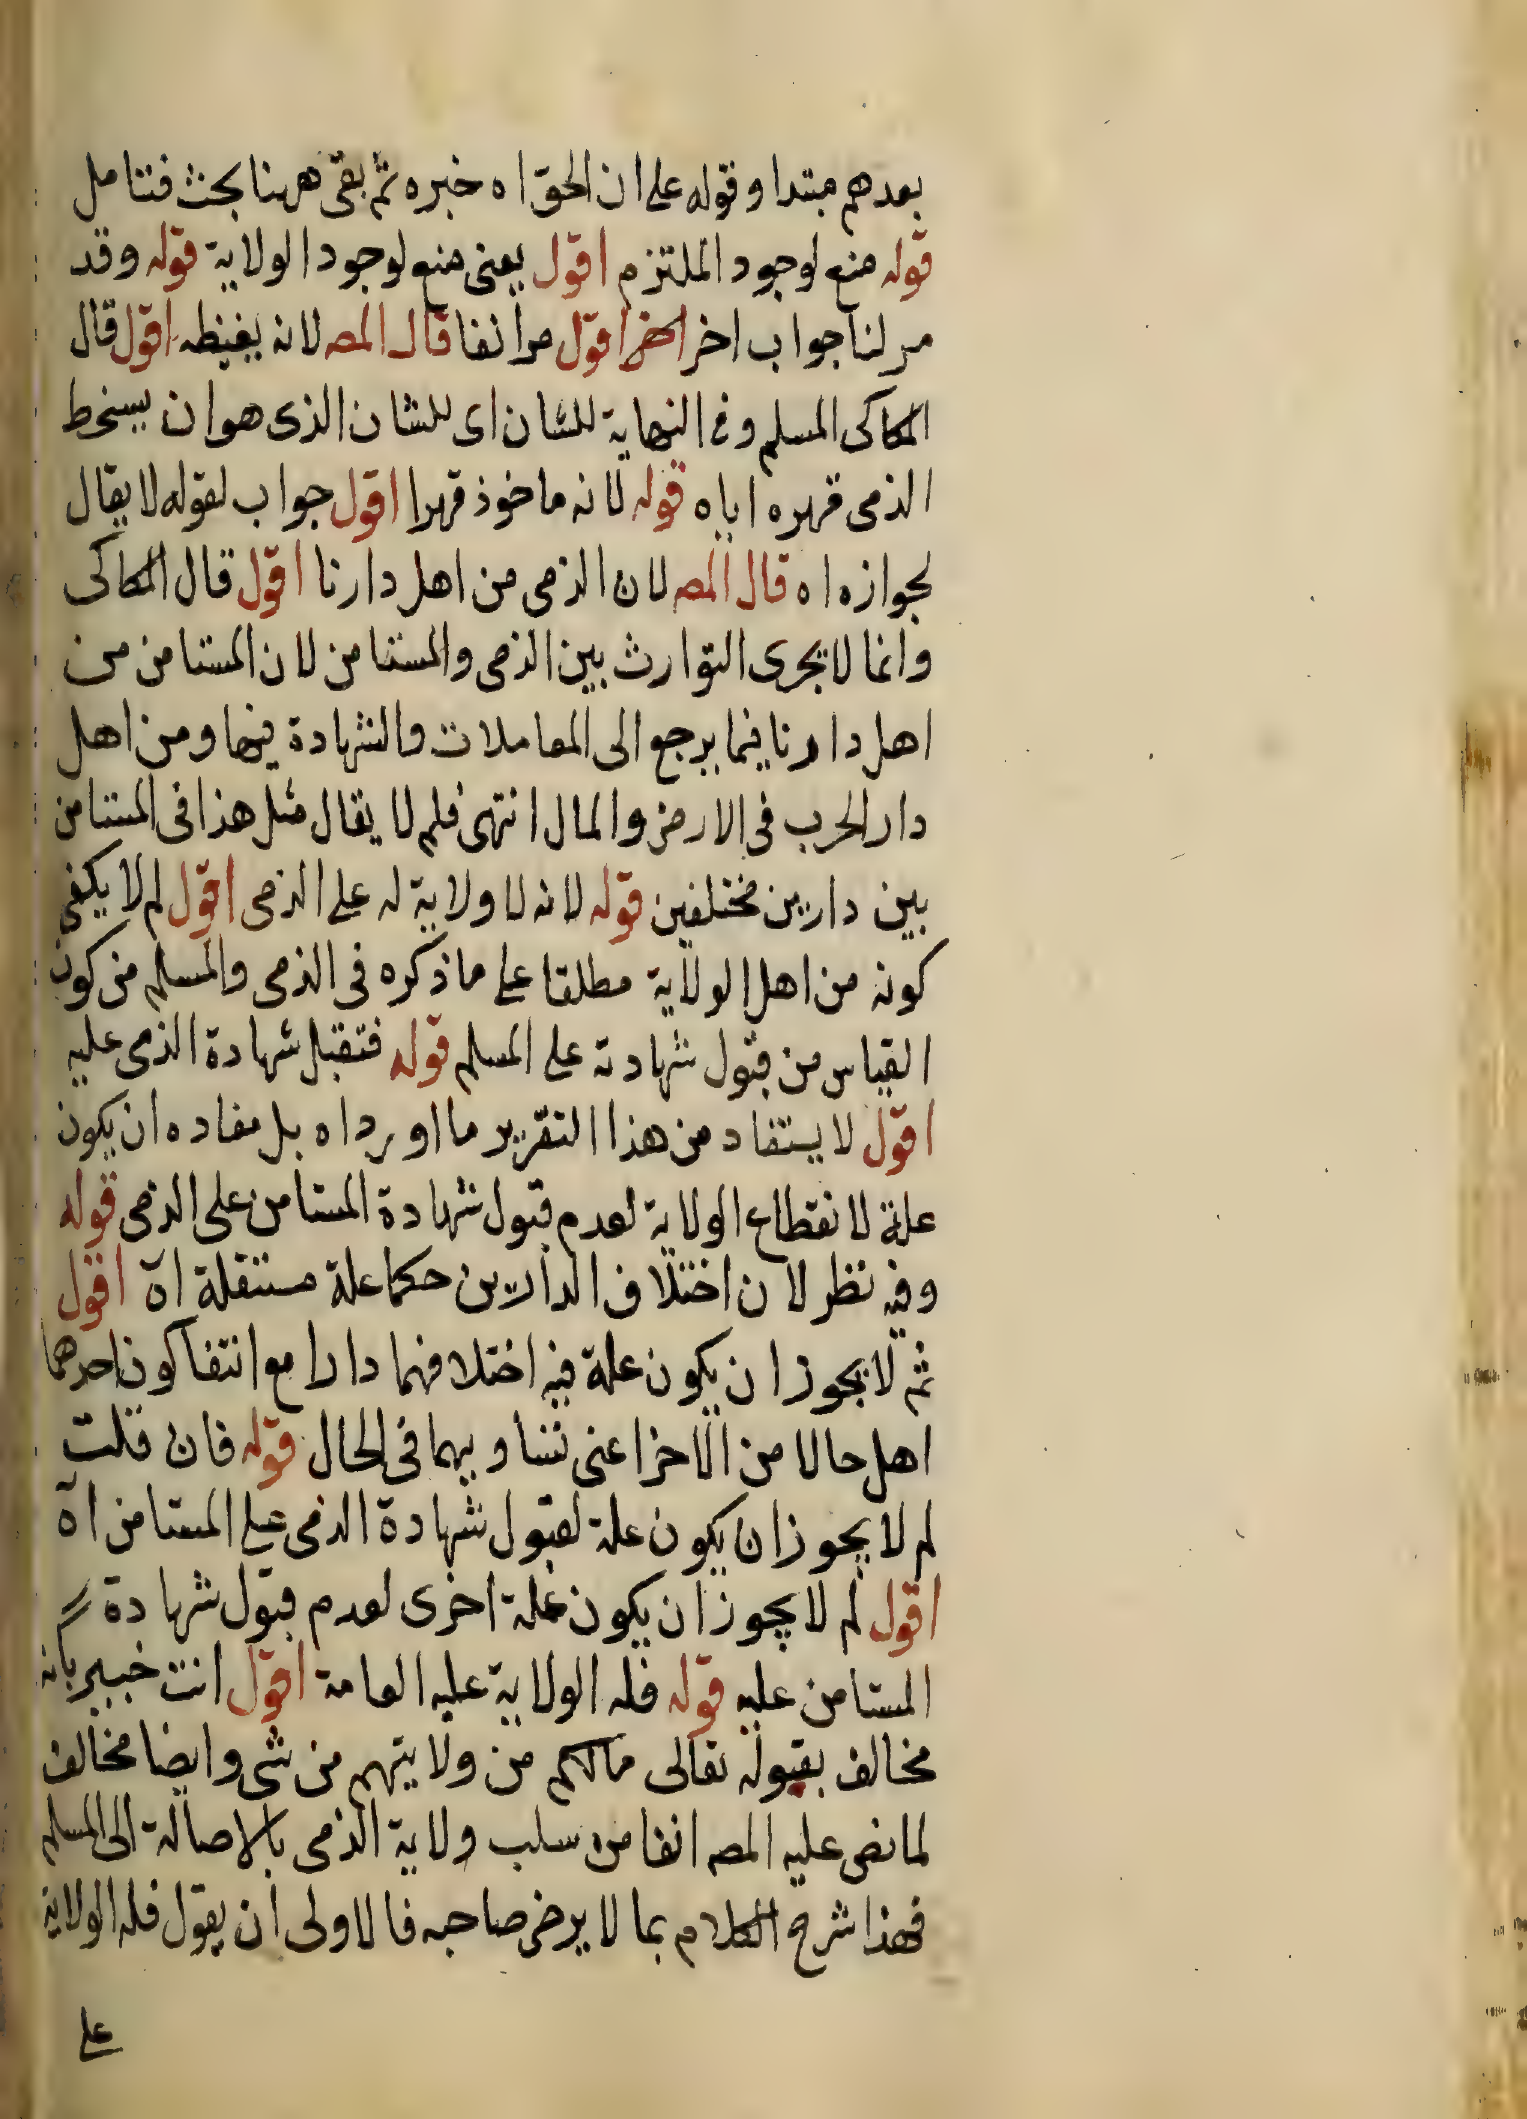 بعدهم مبتدا وقوله على ان الحق اه خبره ثم بقى ههنا بحث فتامل
قوله منع لوجود الملتزم اقول يعنى منع لوجود الولاية قوله وقد
مر لنا جواب اخر الخ اقول مر انفا قال المصـ لانه يغيظه اقول قال
الكاكى المسلم وفى النهاية للشان اى للشان الذى هو ان يسخط
الذمى قهره اياه قوله لانه ماخوذ قهرا اقول جواب لقوله لا يقال
لجوازه اه قال المصـ لان الذمى من اهل دارنا اقول قال الكاكى
وانما لا يجرى التوارث بين الذمى والمستامن لان المستامن من
اهل دارنا فيما يرجع الى المعاملات والشهادة فيها ومن اهل
دار الحرب فى الارض والمال انتهى فلم لا يقال مثل هذا فى المستامن
بين دارين مختلفين قوله لانه لا ولاية له على الذمى اقول لم لا يكفى
كونه من اهل الولاية مطلقا على ما ذكره فى الذمى والمسلم من كون
القياس من قبول شهادته على المسلم قوله فتقبل شهادة الذمى عليه
اقول لا يستفاد من هذا التقرير ما اورداه بل مفاده ان يكون
علة لانقطاع الولاية لعدم قبول شهادة المستامن على الذمى قوله
وفيه نظر لان اختلاف الدارين حكما علة مستقلة اه اقول
ثم لا يجوز ان يكون علة فيه اختلافهما دارا مع انتفا كون احدهما
اهل حالا من الاخر اعنى تساويهما فى الحال قوله فان قلت
لم لا يجوز ان يكون علة لقبول شهادة الذمى على المستامن اه
اقول لم لا يجوز ان يكون علة اخرى لعدم قبول شهادة
المستامن عليه قوله فله الولاية عليه العامة اقول انت خبير بانه
مخالف بقوله تعالى مالكم من ولايتهم من شى وايضا مخالف
لما نص عليه المصـ انفا من سلب ولاية الذمى بالاصالة الى المسلم
فهذا شرح الكلام بما لا يرضى صاحبه فالاولى ان يقول فله الولاية
على